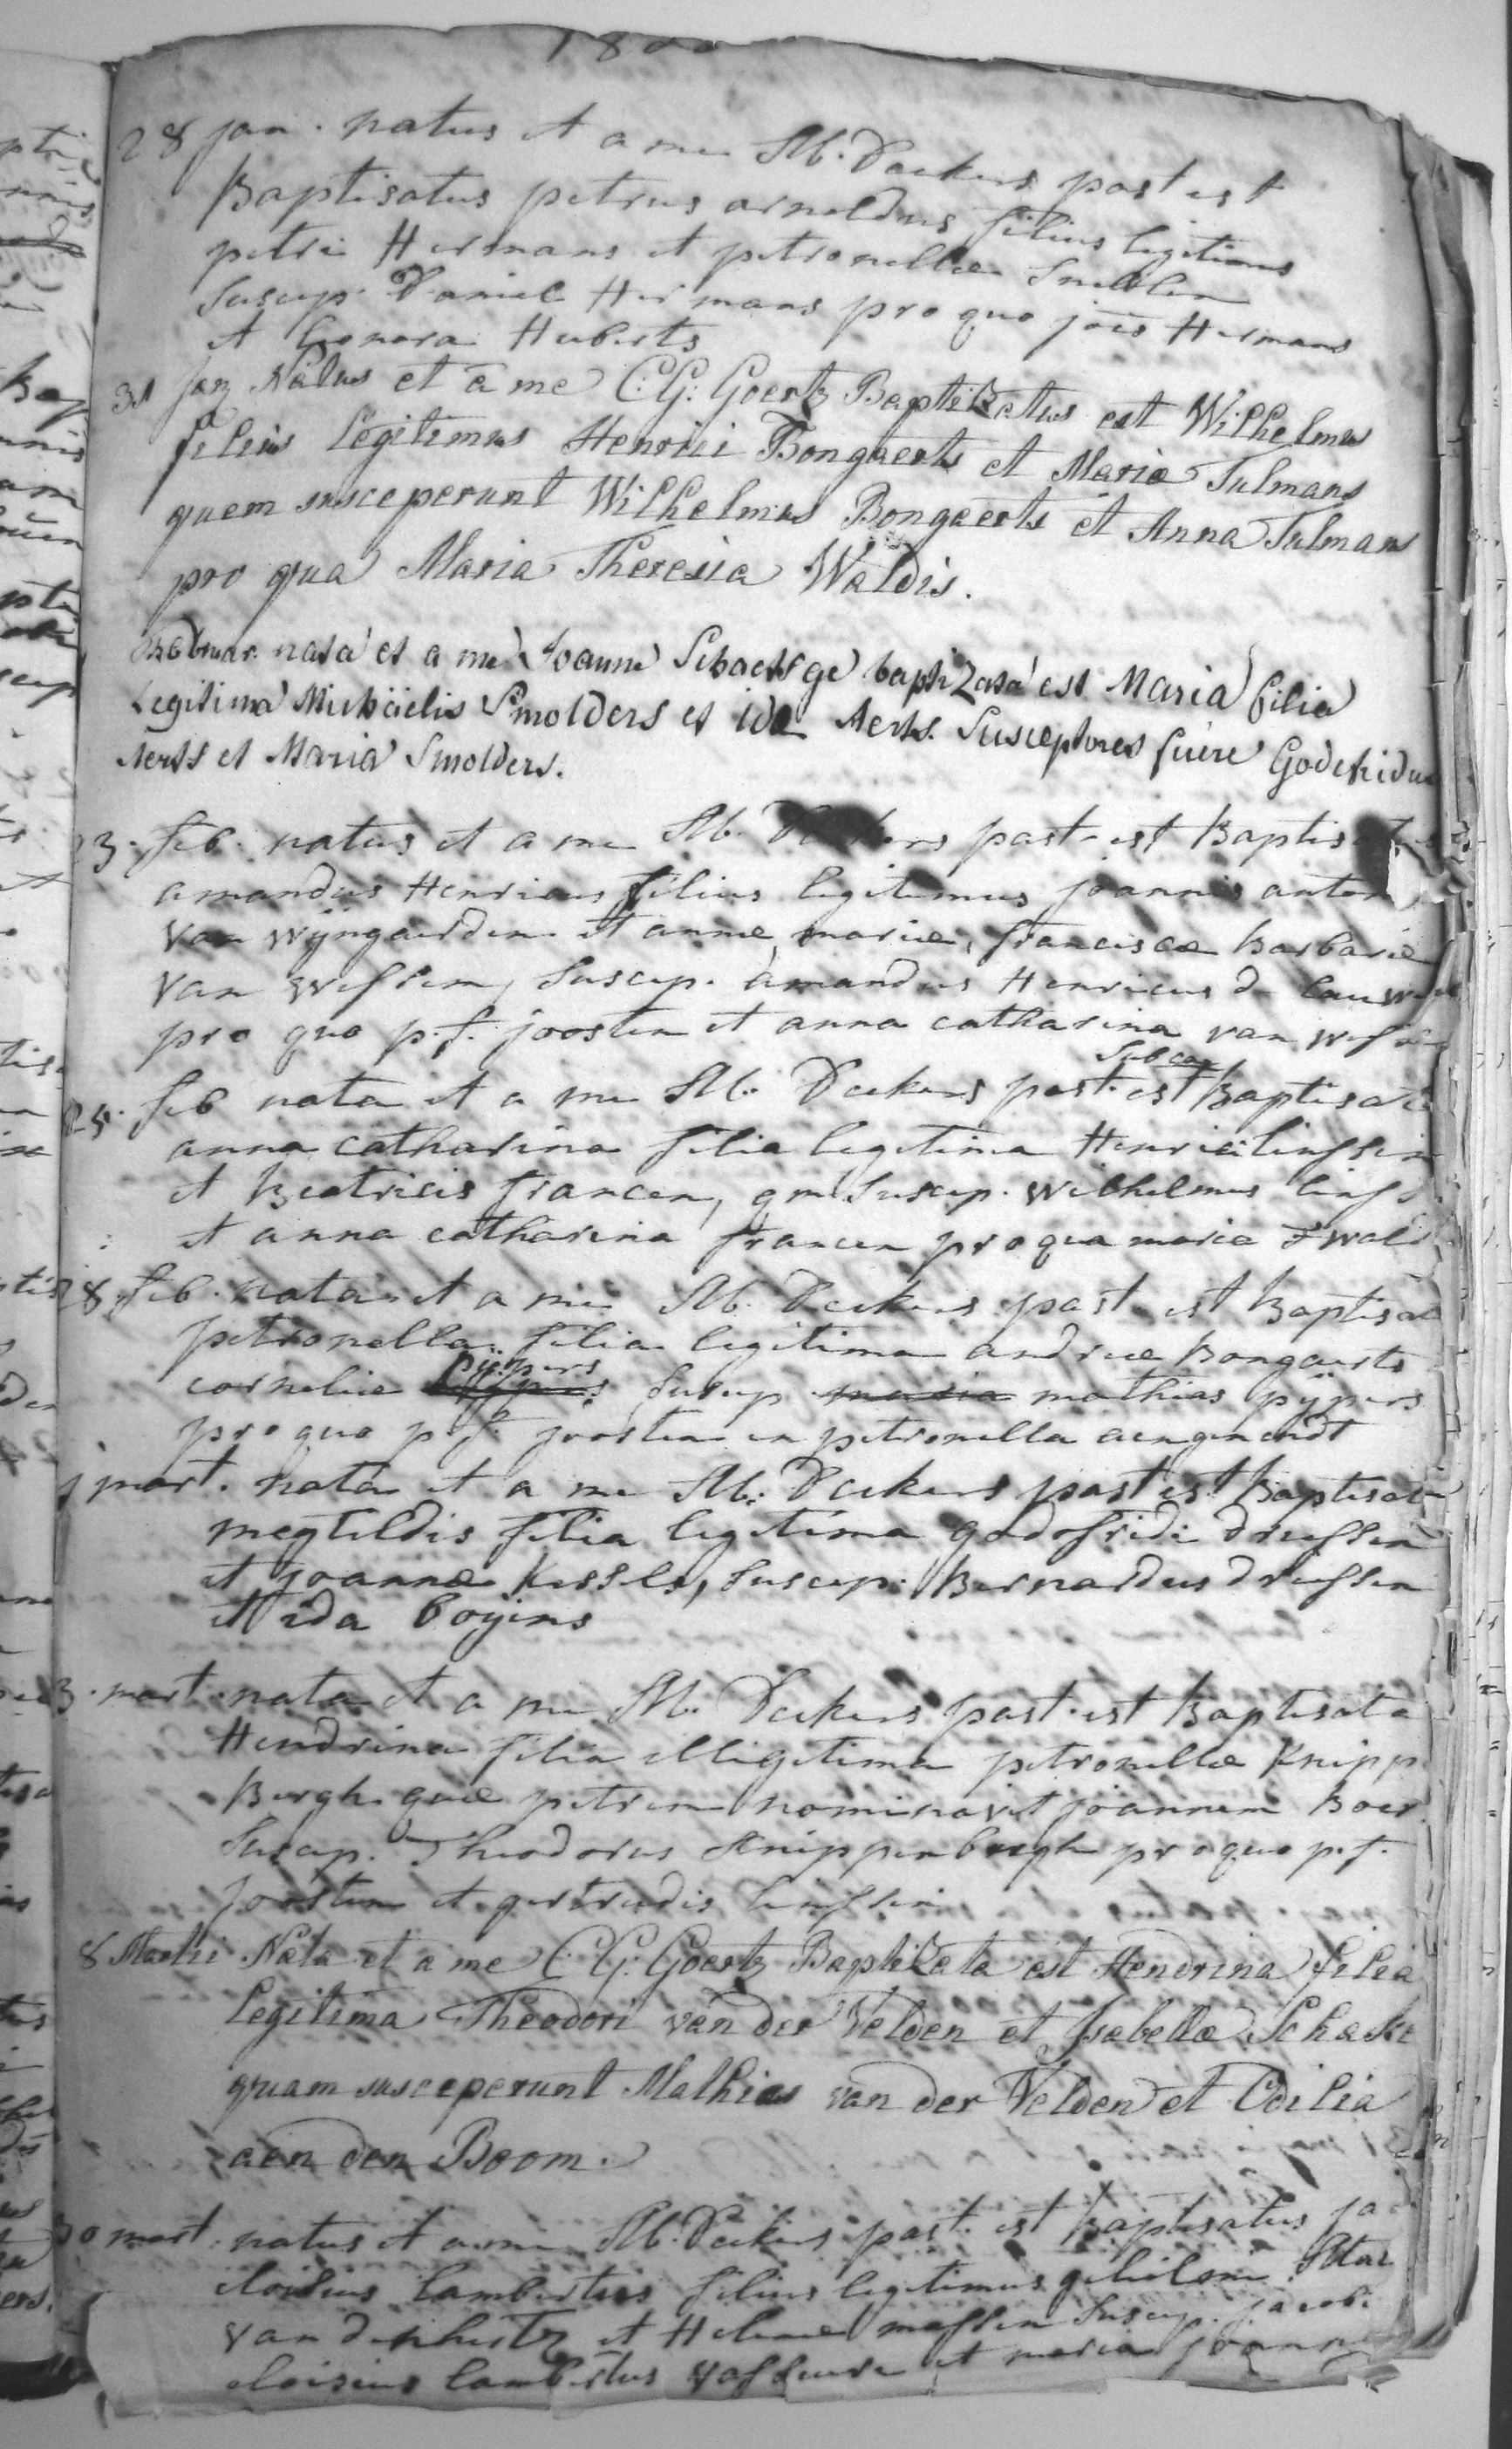 1800
28 jan. natus et a me M. Deckers past est
Baptisatus petrus arnoldus filius legitimus
petri Hermans et petronellae Snellen
Suscep. Daniel Hermans pro quo joes Hermans
et Leonora Huberts
31 jan Natus et a me C: G: Goertz Baptizatus est Wilhelmus
filius legitimus Henrici Bongaerts et Mariae Tulmans
quem susceperunt Wilhelmus Bongaerts et Anna Tulmans
pro qua Maria Theresia Waldis.
nata et a me Joanne Schaessge baptizata est Maria filia
Legitima Michaelis Smolders et idae Aerts. Susceptores fuere Godefridus
Aerts et Maria Smolders.
23. feb. natus et a me M. past. est Baptisatus
amandus Henricus filius legitimus joannis
van wijngaerden et annae mariae, franciscae barbarae
van wessem, Suscep. amandus Henricus de
pro quo p. f. joosten et anna catharina van
Sub con
25. feb nata et a me M. Deckers past. est Baptisata
anna catharina filia legitima Henrici linssen
et Beatricis francen, qm Suscep. Wilhelmus
et anna catharina francen pro qua maria
28. feb. nata et a me M. Deckers past est Baptisata
petronella filia legitima andreae Bongaerts
pijpers
corneliae Suscep maria mathias pijpers
pro quo p. f. joosten en petronella aengenendt
1 mart. nata et a me M. Deckers past est Baptisata
megtildis filia legitima godefridi driessen
et joannae Kessels, Suscep. Bernardus driessen
et ida
3. mart. nata et a me M. Deckers past. est Baptisata
Hendrina filia illigitima petronellae Knipp
Bergh quae patrem nominavit joannem Boer
Suscep. Theodorus Knippenbergh pro quo p. f.
joosten et gertrudis linssen
8 Martii Nata et a me C. G: Goertz Baptizata est Hendrina filia
legitima Theodori van der Velden et Isabellae
quam susceperunt Mathias van der Velden et Odilia
aen den Boom.
30 mart. natus et a me M. Deckers past. est baptisatus
aloisius lambertus filius legitimus
et Helenae massen Suscep.
aloisius lambertus et maria